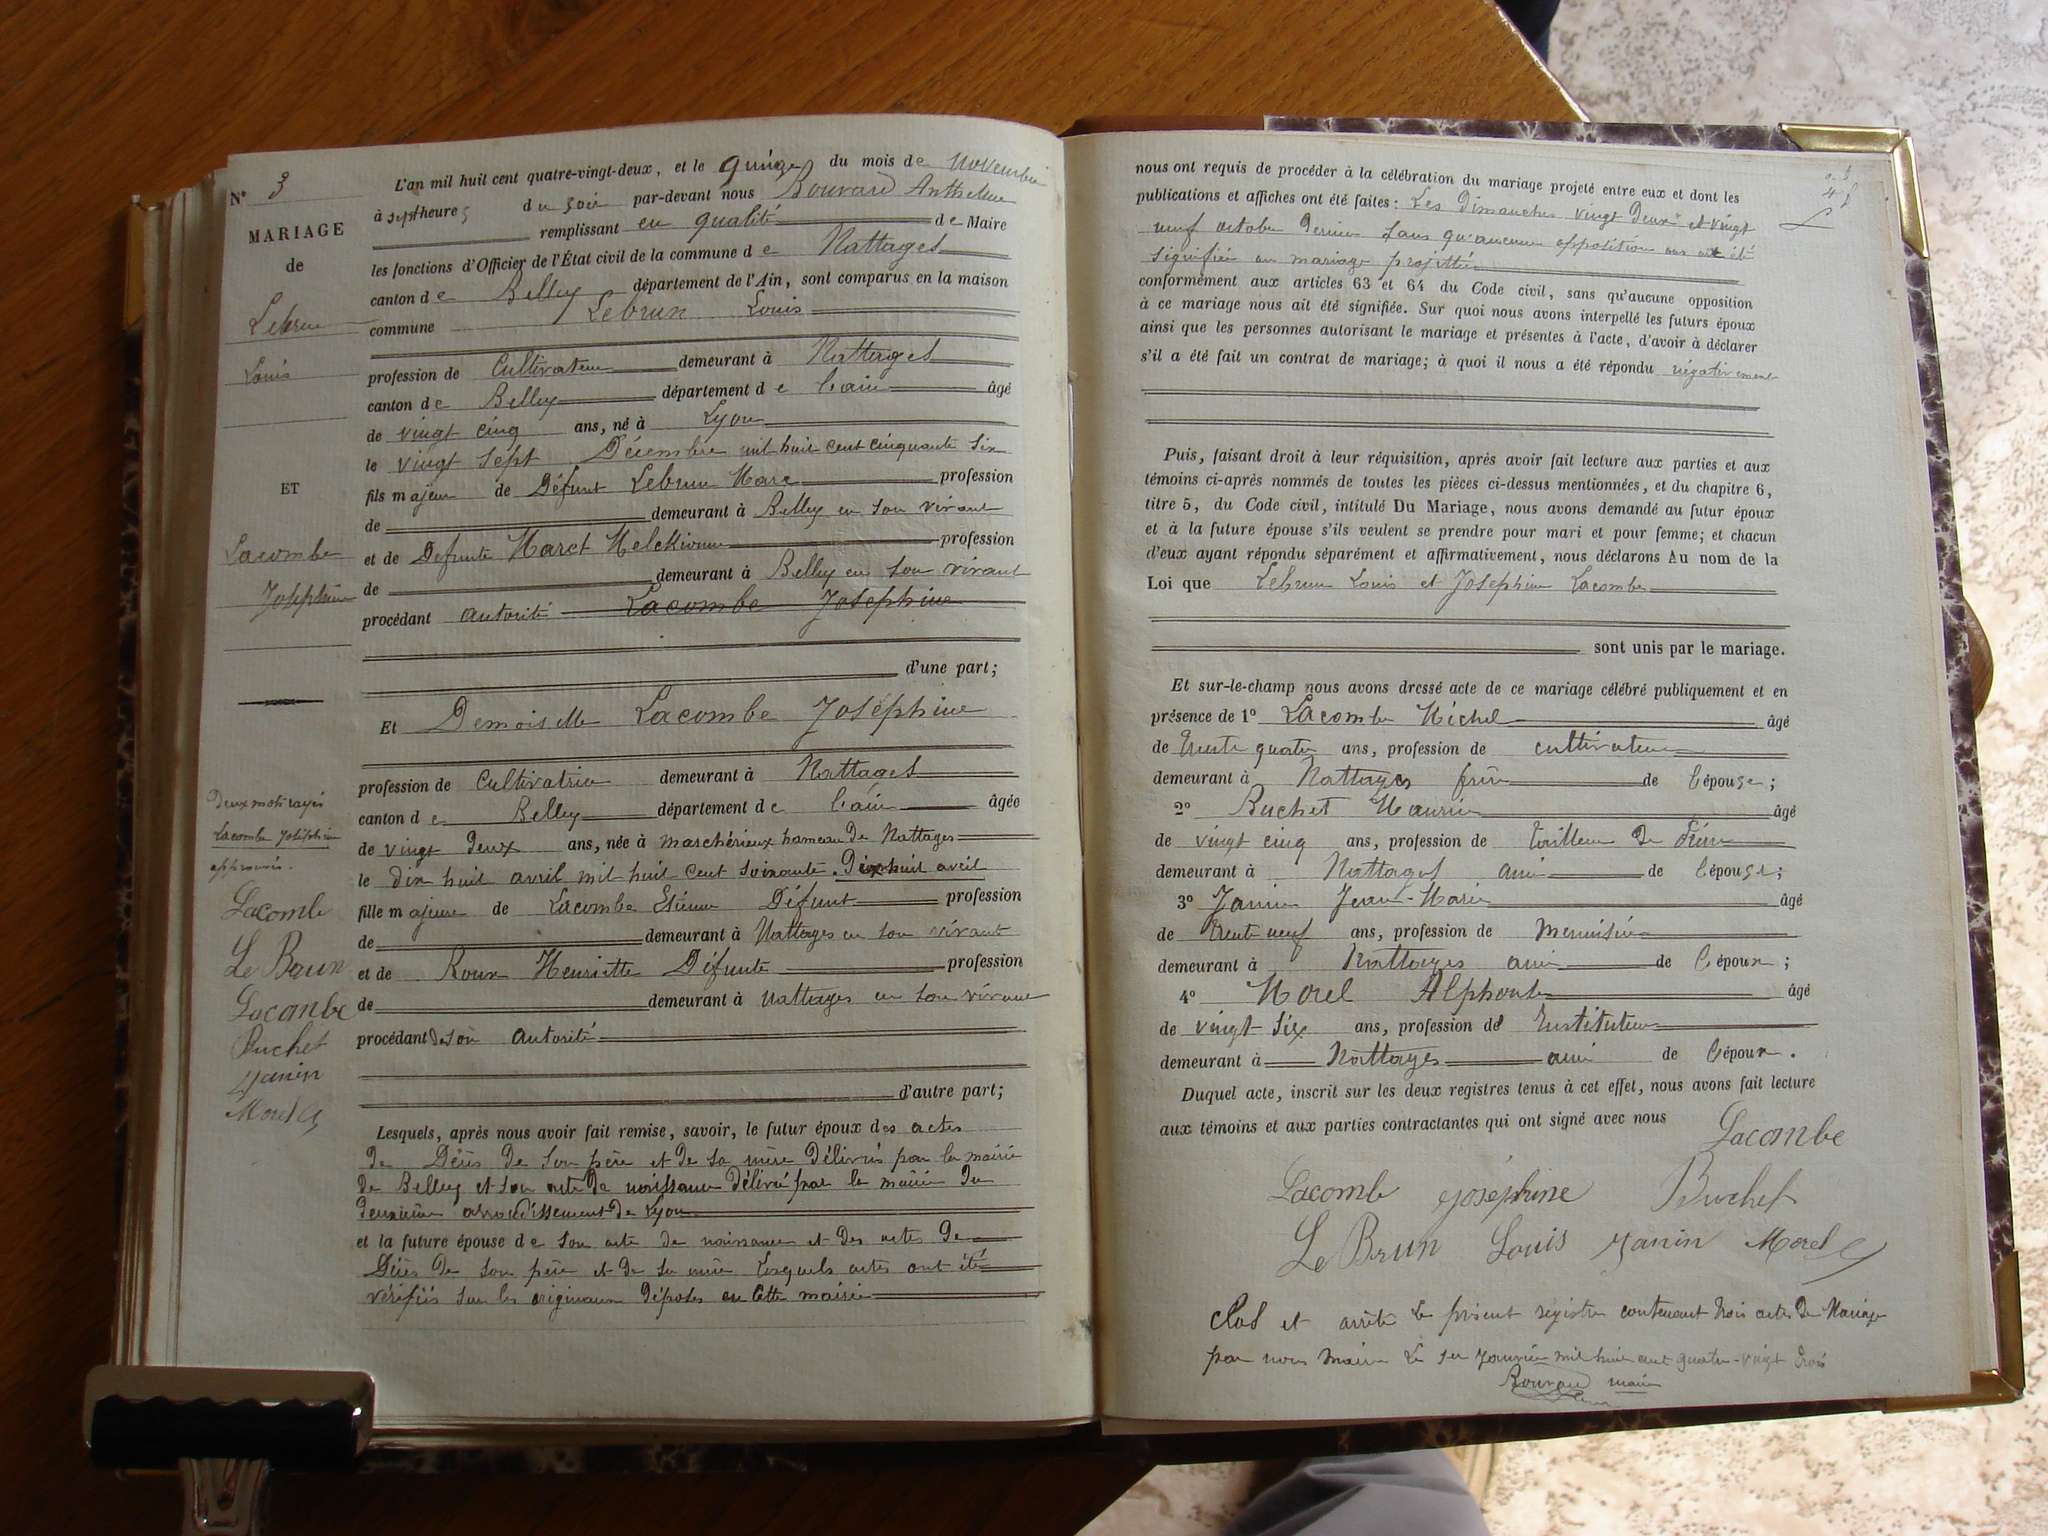 N° 3
MARIAGE
de
Lebrun
Louis
ET
Lacombe
Joséphine
Deux mots rayés
Lacombe Joséphine
approuvés.
Lacombe
Le Brun
Lacombe
Buchet
Janin
Morel
L'an mil huit cent quatre-vingt-deux, et le quinze du mois de Novembre
à sept heures du soir par-devant nous Bouvard Anthelme
remplissant en qualité de Maire
les fonctions d'Officier de l'État civil de la commune de Nattages
canton de Belley département de l'Ain, sont comparus en la maison
commune Lebrun Louis
profession de Cultivateur demeurant à Nattages
canton de Belley département de l'ain âgé
de vingt cinq ans, né à Lyon
le vingt sept Décembre mil huit cent cinquante six
fils majeur de Défunt Lebrun Marc profession
de demeurant à Belley en son vivant
et de Défunte Marct profession
de demeurant à Belley en son vivant
procédant autorité Lacombe Joséphine
d'une part;
Et Demoiselle Lacombe Joséphine
profession de Cultivatrice demeurant à Nattages
canton de Belley département de l'ain âgée
de vingt Deux ans, née à marchérieux hameau de Nattages
le dix huit avril mil huit cent soixante. Dix huit avril
fille majeure de Lacombe Etienne Défunt profession
de demeurant à Nattages en son vivant
et de Roux Henriette Défunte profession
de demeurant à Nattages en son vivant
procédant de son autorité
d'autre part;
Lesquels, après nous avoir fait remise, savoir, le futur époux des actes
de Décès de son père et de sa mère délivrés par la mairie
de Belley et son acte de naissance délivré par la mairie du
deuxième arrondissement de Lyon
et la future épouse de son acte de naissance et des actes de
Décès de son père et de sa mère lesquels actes ont été
vérifiés sur les originaux déposés en cette mairie
nous ont requis de procéder à la célébration du mariage projeté entre eux et dont les
publications et affiches ont été faites : Les Dimanches vingt Deux et vingt
neuf octobre dernier sans qu'aucune opposition ait été
signifiée au mariage projetté
conformément aux articles 63 et 64 du Code civil, sans qu'aucune opposition
à ce mariage nous ait été signifiée. Sur quoi nous avons interpellé les futurs époux
ainsi que les personnes autorisant le mariage et présentes à l'acte, d'avoir à déclarer
s'il a été fait un contrat de mariage; à quoi il nous a été répondu négativement
Puis, faisant droit à leur réquisition, après avoir fait lecture aux parties et aux
témoins ci-après nommés de toutes les pièces ci-dessus mentionnées, et du chapitre 6,
titre 5, du Code civil, intitulé Du Mariage, nous avons demandé au futur époux
et à la future épouse s'ils veulent se prendre pour mari et pour femme; et chacun
d'eux ayant répondu séparément et affirmativement, nous déclarons Au nom de la
Loi que Lebrun Louis et Joséphine Lacombe
sont unis par le mariage.
Et sur-le-champ nous avons dressé acte de ce mariage célébré publiquement et en
présence de 1° Lacombe Michel âgé
de trente quatre ans, profession de cultivateur
demeurant à Nattages frère de l'épouse;
2° Buchet Maurice âgé
de vingt cinq ans, profession de tailleur de
demeurant à Nattages ami de l'épouse;
3° Janin Jean-Marie âgé
de trente neuf ans, profession de Menuisier
demeurant à Nattages ami de l'époux;
4° Morel Alphonse âgé
de vingt six ans, profession de Instituteur
demeurant à Nattages ami de l'époux.
Duquel acte, inscrit sur les deux registres tenus à cet effet, nous avons fait lecture
aux témoins et aux parties contractantes qui ont signé avec nous
Lacombe
Lacombe Joséphine Buchet
Le Brun Louis Janin Morel
Clos et arrêté le présent registre contenant trois actes de Mariage
par nous maire le 1er Janvier mil huit cent quatre-vingt trois
Bouvard maire